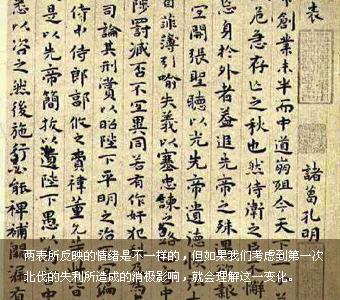 表
諸葛孔明
帝創業未半而中道崩殂今天
危急存亡之秋也然侍衛之臣
忘身於外者蓋追先帝之殊
宜開張聖聽以光先帝遺德
自菲薄引喻失義以塞忠諫之路
陟罰臧否不宜異同若有作奸犯
司論其刑賞以昭陛下平明之治
侍中侍郎郭攸之費禕董允
是以先帝簡拔以遺陛下愚
悉以咨之然後施行必能裨補闕漏有
两表所反映的情绪是不一样的，但如果我们考虑到第一次
北伐的失利所造成的消极影响，就会理解这一变化。